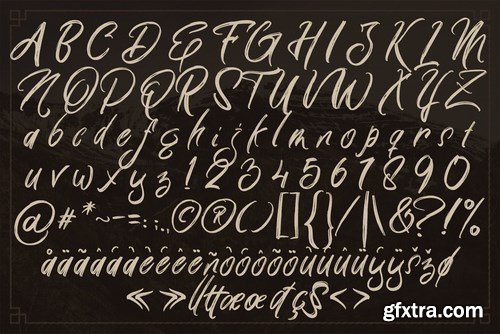 A B C D E F G H I J K L M
N O P Q R S T U V W X Y Z
a b c d e f g h i j k l m n o p q r s t
u v w x y z 1 2 3 4 5 6 7 8 9 0
@ # * ~ - = : ; . , © ® ( ) [ ] { } / | \ & ? ! %
å ä ã á à â é ë è ê ñ ò ó ö õ ô ú ü ù û ý ÿ š ž ø
« » æ œ đ ç Š < >
gfxtra.com